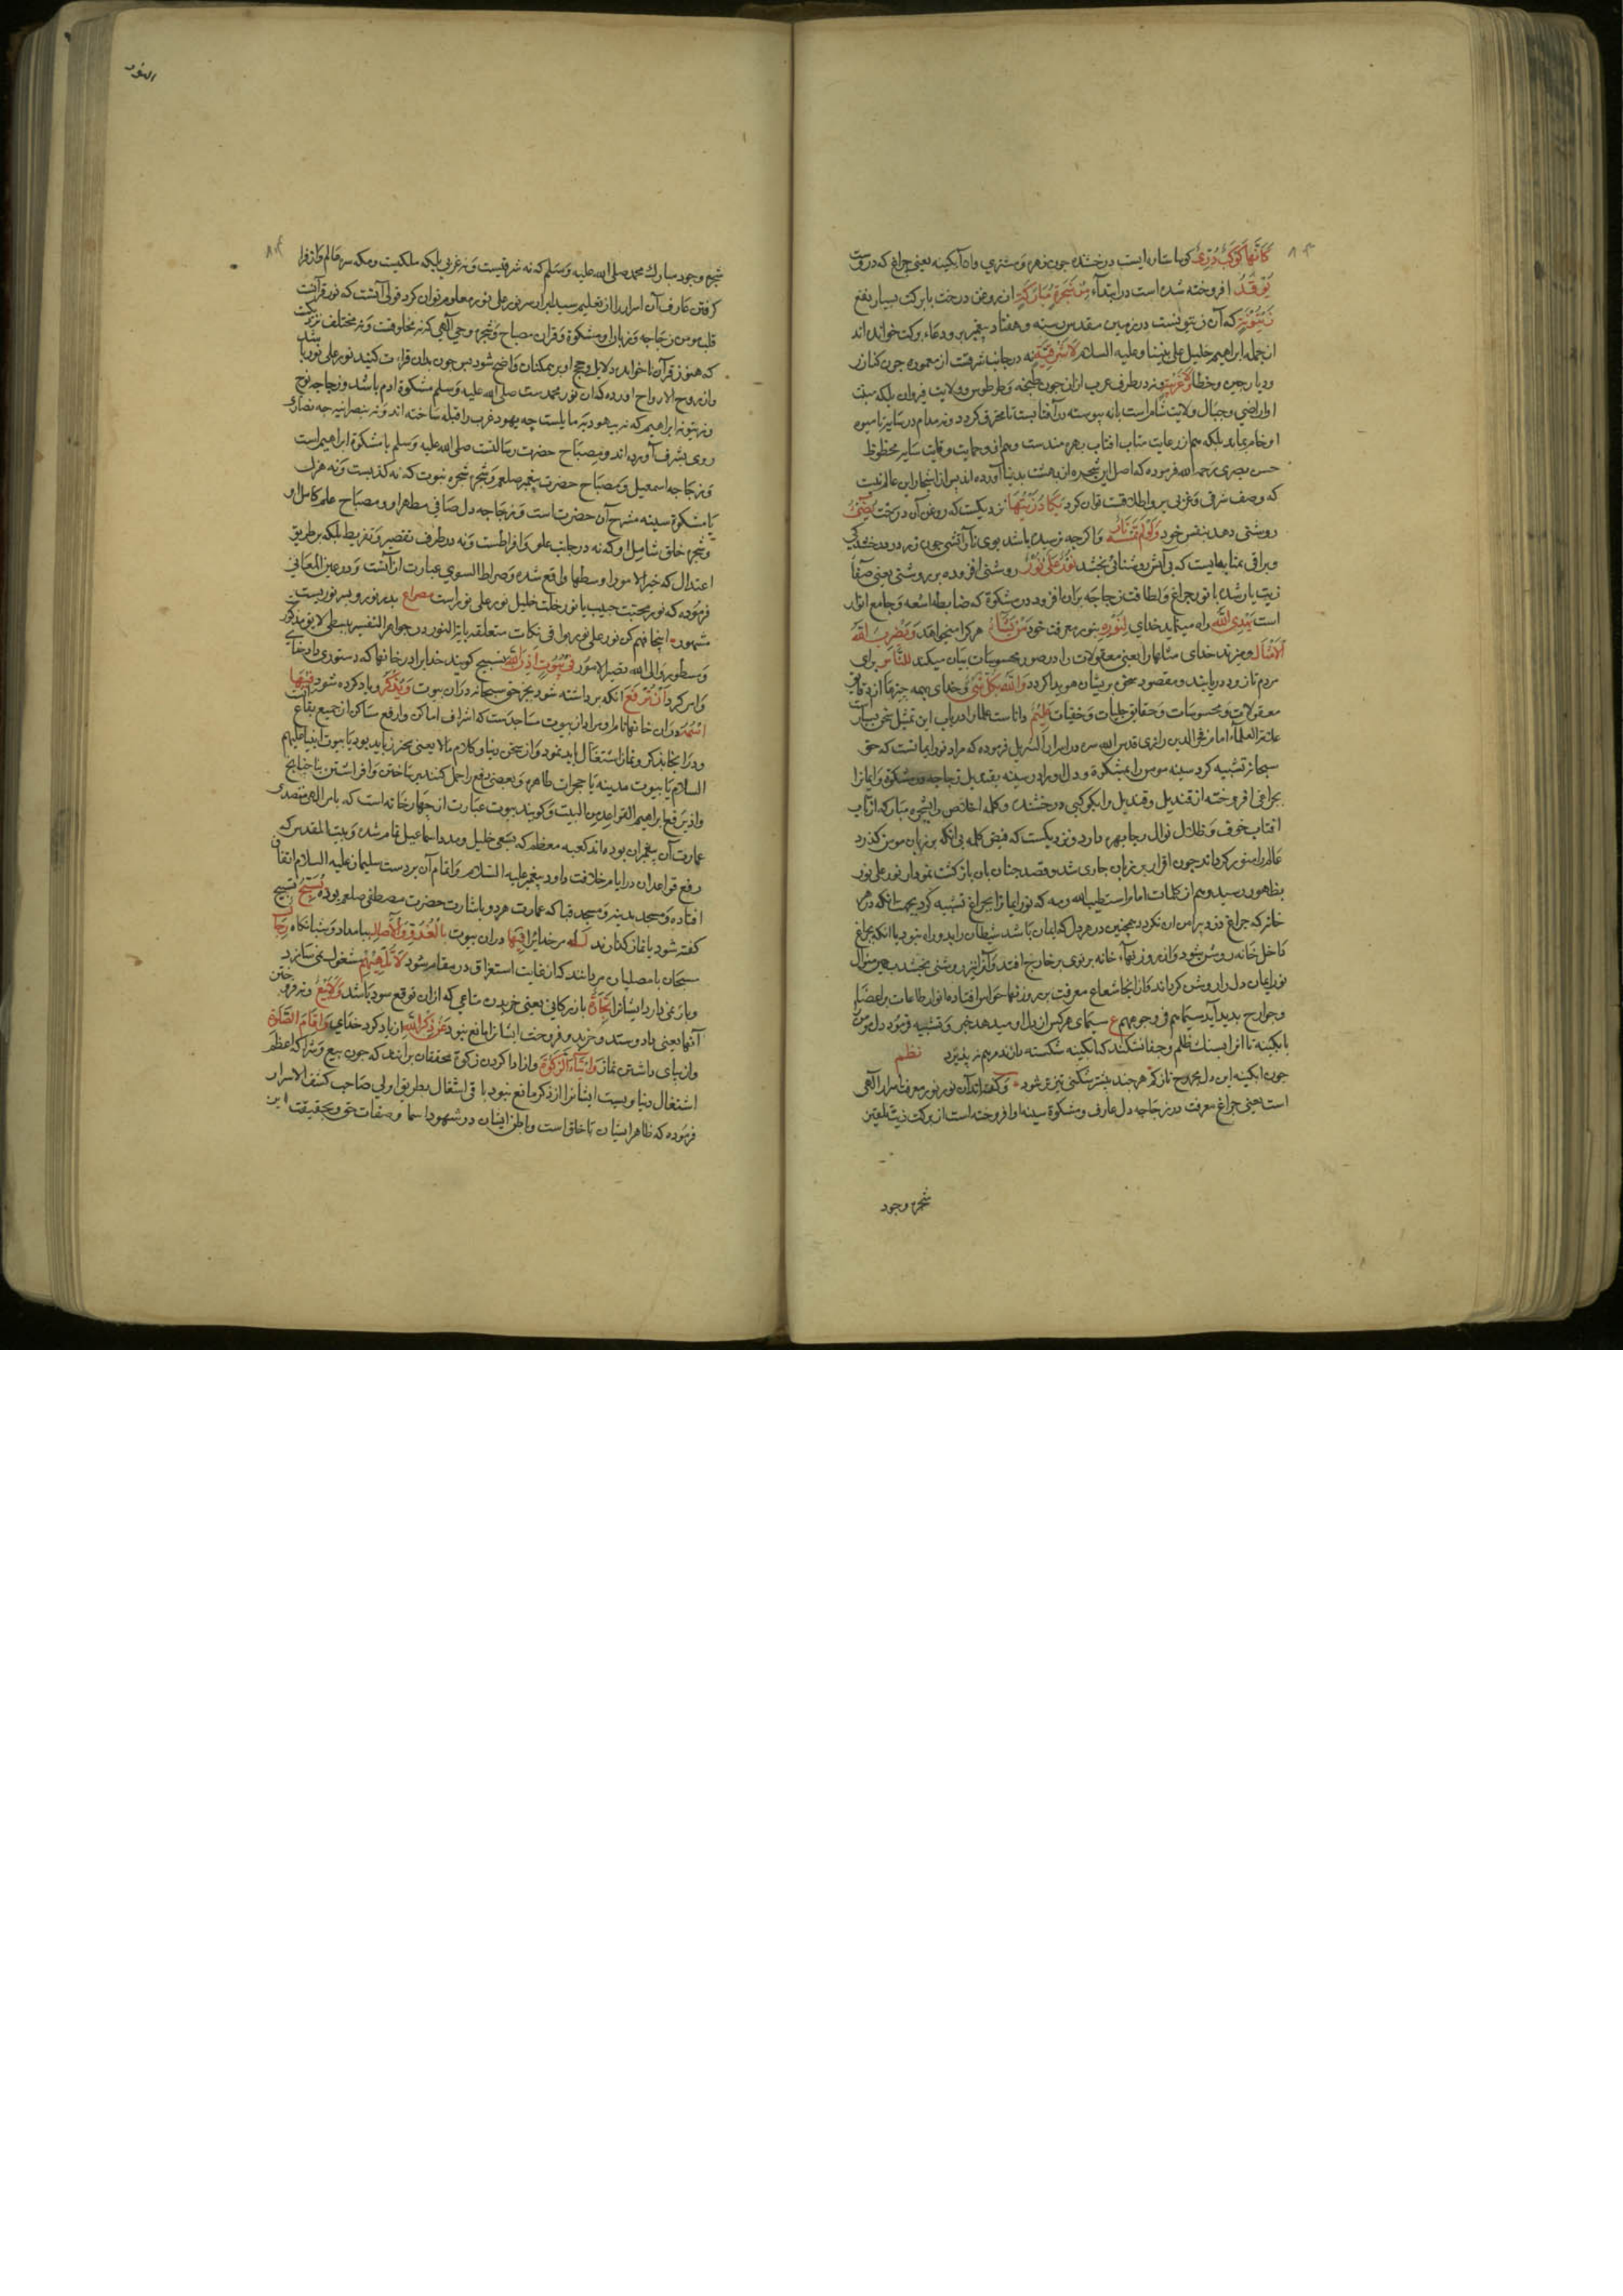 كَأَنَّهَا كَوْكَبٌ دُرِّيٌّ كويا ستاره ايست درخشنده چون زهره و مشتري واه آبكينه يعنى چراغ كه دروست
يُوقَدُ افروخته شده است در ابتداء مِنْ شَجَرَةٍ مُبَارَكَةٍ از روغن درخت بابركت بسيار نفع
زَيْتُونَةٍ كه آن زيتونست در زمين مقدس رسته و هفتاد پيغمبر برو دعاء بركت خوانده اند
از جمله ابراهيم خليل على نبينا وعليه السلام لَا شَرْقِيَّةٍ نه در جانب شرقست از معموره چون كنكدز
وديار چين وخطا وَلَا غَرْبِيَّةٍ و نه در طرف غرب از ان چون طنجه و طرطوس و ولايت قيروان بلكه منبت
او اراضي و جبال ولايت شام است يا نه پيوسته در آفتابست تا محرق كردد و نه مدام در سايه تا ميوه
او خام بماند بلكه هم از رعايت متاب افتاب بهره مندست وهم از وحمايت وقايت سايه محظوظ
حسن بصرى رحمه الله فرموده كه اصل اين شجره از بهشت بدنيا آورده اند پس از اشجار اين عالم نيست
كه وصف شرقى وغربى برو اطلاقت توان كرد يَكَادُ زَيْتُهَا نزديكست كه روغن آن درخت يُضِيءُ
روشنى دهد بنفس خود وَلَوْ لَمْ تَمْسَسْهُ نَارٌ و اكرچه نرسيده باشد بوى نار آتشى چون زيت در درخشندكى
وبراقى بمثابه ايست كه بى آتش روشنائى بخشد نُورٌ عَلَىٰ نُورٍ روشنى افزوده بر روشنى يعنى صفا
زيت يار شده با نور چراغ ولطافت زجاجه بران افزوده در مشكوة كه ضابطه اشعه وجامع انوار
است يَهْدِي اللَّهُ راه مينمايد خداى لِنُورِهِ بنور معرفت خود مَنْ يَشَاءُ هركرا ميخواهد وَيَضْرِبُ اللَّهُ
الْأَمْثَالَ وميزند خداى مثلها را يعنى معقولات را در صور محسوسات بيان ميكند لِلنَّاسِ براى
مردم تا زود دريابند ومقصود سخن بريشان هويدا كردد وَاللَّهُ بِكُلِّ شَيْءٍ وخداى بهمه چيزها از دقايق
معقولات ومحسوسات وحقايق جليات وخفيات عَلِيمٌ داناست علما را در باب اين تمثيل سخن بسيارست
علامة العلماء امام فخر الدين رازى قدس الله سره در اسرار التنزيل فرموده كه مراد نور ايمانست كه حق
سبحانه تشبيه كرد سينه مومن را بمشكوة ودل او را در سينه بقنديل زجاجه در مشكوة وايمانرا
بچراغى افروخته از قنديل وقنديل را بكوكبى درخشنده وكلمه اخلاص را بشجره مباركه از تاب
افتاب خوف وظلال نوال رجا بهره دارد ونزديكست كه فيض كلمه بى انكه بر زبان مومن كذرد
عالم را منور كرداند چون اقرار بر زبان جارى شد وقصد جنان بان يار كشت نمودار نور على نور
بظهور رسيد وهم از كلمات امام است طيب الله رمسه كه نور ايمانرا بچراغ تشبيه كرد بجهت انكه در هر
خانه كه چراغ دزد پيرامن ان نكردد همچنين در هر دل كه ايمان باشد شيطان را بدو راه نبود يا انكه بچراغ
داخل خانه روشن شود واز روزنهاء خانه پرتوى بر خارج افتد وآنرا نيز روشنى بخشد بهمين منوال
نور ايمان دل را روشن كرداند واز انجا شعاع معرفت بر روزنهاء حواس افتاده انوار طاعات بر اعضا
وجوارح پديد آيد سيماهم فى وجوههم ع سيماى هركس از دل او ميدهد خبر وتشبيه فرمود دل مومن را
بابكينه تا انرا بسنك ظلم وجفا نشكند كه ابكينه شكسته دا ند مرهم نپذيرد نظم
چون ابكينه اين دل مجروح نازكم هر چند بيشتر شكنى تيزتر شود وكفته اند آن نور نور معرفت اسرار الهى
است يعنى چراغ معرفت در زجاجه دل عارف ومشكوة سينه او افروخته است از بركت زيت تلقين
شجره وجود
النور
شجره وجود مبارك محمد صلى الله عليه وسلم كه نه شرقيست ونه غربى بلكه مكيست ومكه سره عالم واز فرا
كرفتن عارف آن اسرار را از تعليم سيد ابرار سر نور على نور معلوم توان كرد قولى آنست كه نور قرآنست
قلب مومن زجاجه و زبان او مشكوة وقران مصباح وشجره وحي الهى كه نه مخلوقست ونه مختلف نزديكست
كه هنوز قرآن ناخوانده دلايل و حجج او بر همكنان واضح شود پس چون بدان قراءت كنند نور على نور باشد
و از روح الارواح اورده كه ان نور محمديست صلى الله عليه وسلم مشكوة ادم باشد و زجاجه نوح
وزيتونه ابراهيم كه نه يهوديه مايلست چه يهود غرب را قبله ساخته اند ونه نصرانيه چه نصارى
روى بشرف آورده اند و مصباح حضرت رسالتست صلى الله عليه وسلم يا مشكوة ابراهيم است
وزجاجه اسمعيل ومصباح حضرت پيغمبر صلعم وشجره شجره نبوت كه نه كذبست ونه هزل
يا مشكوة سينه مشرح آن حضرت است وزجاجه دل صافى مطهر او ومصباح علم كامل او
وشجره خلق شامل او كه نه در جانب غلو وافراطست ونه در طرف تقصير وتفريط بلكه بر طريق
اعتدال كه خير الامور اوسطها واقع شده وصراط السوي عبارت از آنست ودر عين المعانى
فرموده كه نور محبت حبيب با نور خلت خليل نور على نور است مصراع پدر نور و پسر نوريست
مشهور اينجا فهم كن نور على نور و باقى نكات متعلقه بآية النور در جواهر التفسير ببسطى لايق مذكور
ومسطور والى الله تصير الامور فِي بُيُوتٍ أَذِنَ اللَّهُ تسبيح كويند خداى را در خانها كه دستورى داد خداى
وامر كرد أَنْ تُرْفَعَ انكه برداشته شود بحق سبحانه دران بيوت وَيُذْكَرَ وياد كرده شود فِيهَا
اسْمُهُ دران خانها نام او مراد از بيوت مساجدست كه اشراف اماكن وارفع مساكن از جميع بقاع است
ودر آنجا بذكر ونماز اشتغال بايد نمود و از سخن دنيا وكلام مالا يعنى محترز بايد بود يا بيوت انبيا عليهم
السلام يا بيوت مدينه يا حجرات طاهره وبعضى رفع را حمل كنند بر ساختن و افراشتن بنا چنانچه
واذ يرفع ابراهيم القواعد من البيت وكويند بيوت عبارت از چهار خانه است كه بامر الهى متصدى
عمارت آن پيغمبران بوده اند كعبه معظمه كه بسعى خليل ومدد اسماعيل تمام شد وبيت المقدس كه
رفع قواعد ان در ايام خلافت داود پيغمبر عليه السلام واتمام آن بر دست سليمان عليه السلام اتفاق
افتاده ومسجد مدينه ومسجد قبا كه عمارت هر دو باشارت حضرت مصطفى صلعم بوده يُسَبِّحُ تسبيح
كفته شود يا نماز كذارند لَهُ مر خدايرا فِيهَا دران بيوت بِالْغُدُوِّ وَالْآصَالِ ببامداد وشبانكاه رِجَالٌ
مسبحان يا مصليان مردانند كه از غايت استغراق در مقام شهود لَا تُلْهِيهِمْ مشغول نمى سازد
وباز نمى دارد ايشانرا تِجَارَةٌ بازركانى يعنى خريدن متاعى كه ازان توقع سود باشد وَلَا بَيْعٌ ونه فروختن
آنها يعنى داد وستد وخريد وفروخت ايشانرا مانع نبود عَنْ ذِكْرِ اللَّهِ از ياد كرد خداي وَإِقَامِ الصَّلَاةِ
واز بپاى داشتن نماز وَإِيتَاءِ الزَّكَاةِ واز ادا كردن زكوة محققان برانند كه چون بيع وشرا كه اعظم
اشتغال دنياويست ايشانرا از ذكر مانع نبود باقى اشغال بطريق اولى صاحب كشف الاسرار
فرموده كه ظاهر ايشان با خلق است وباطن ايشان در شهود اسما وصفات حق وبحقيقت اين